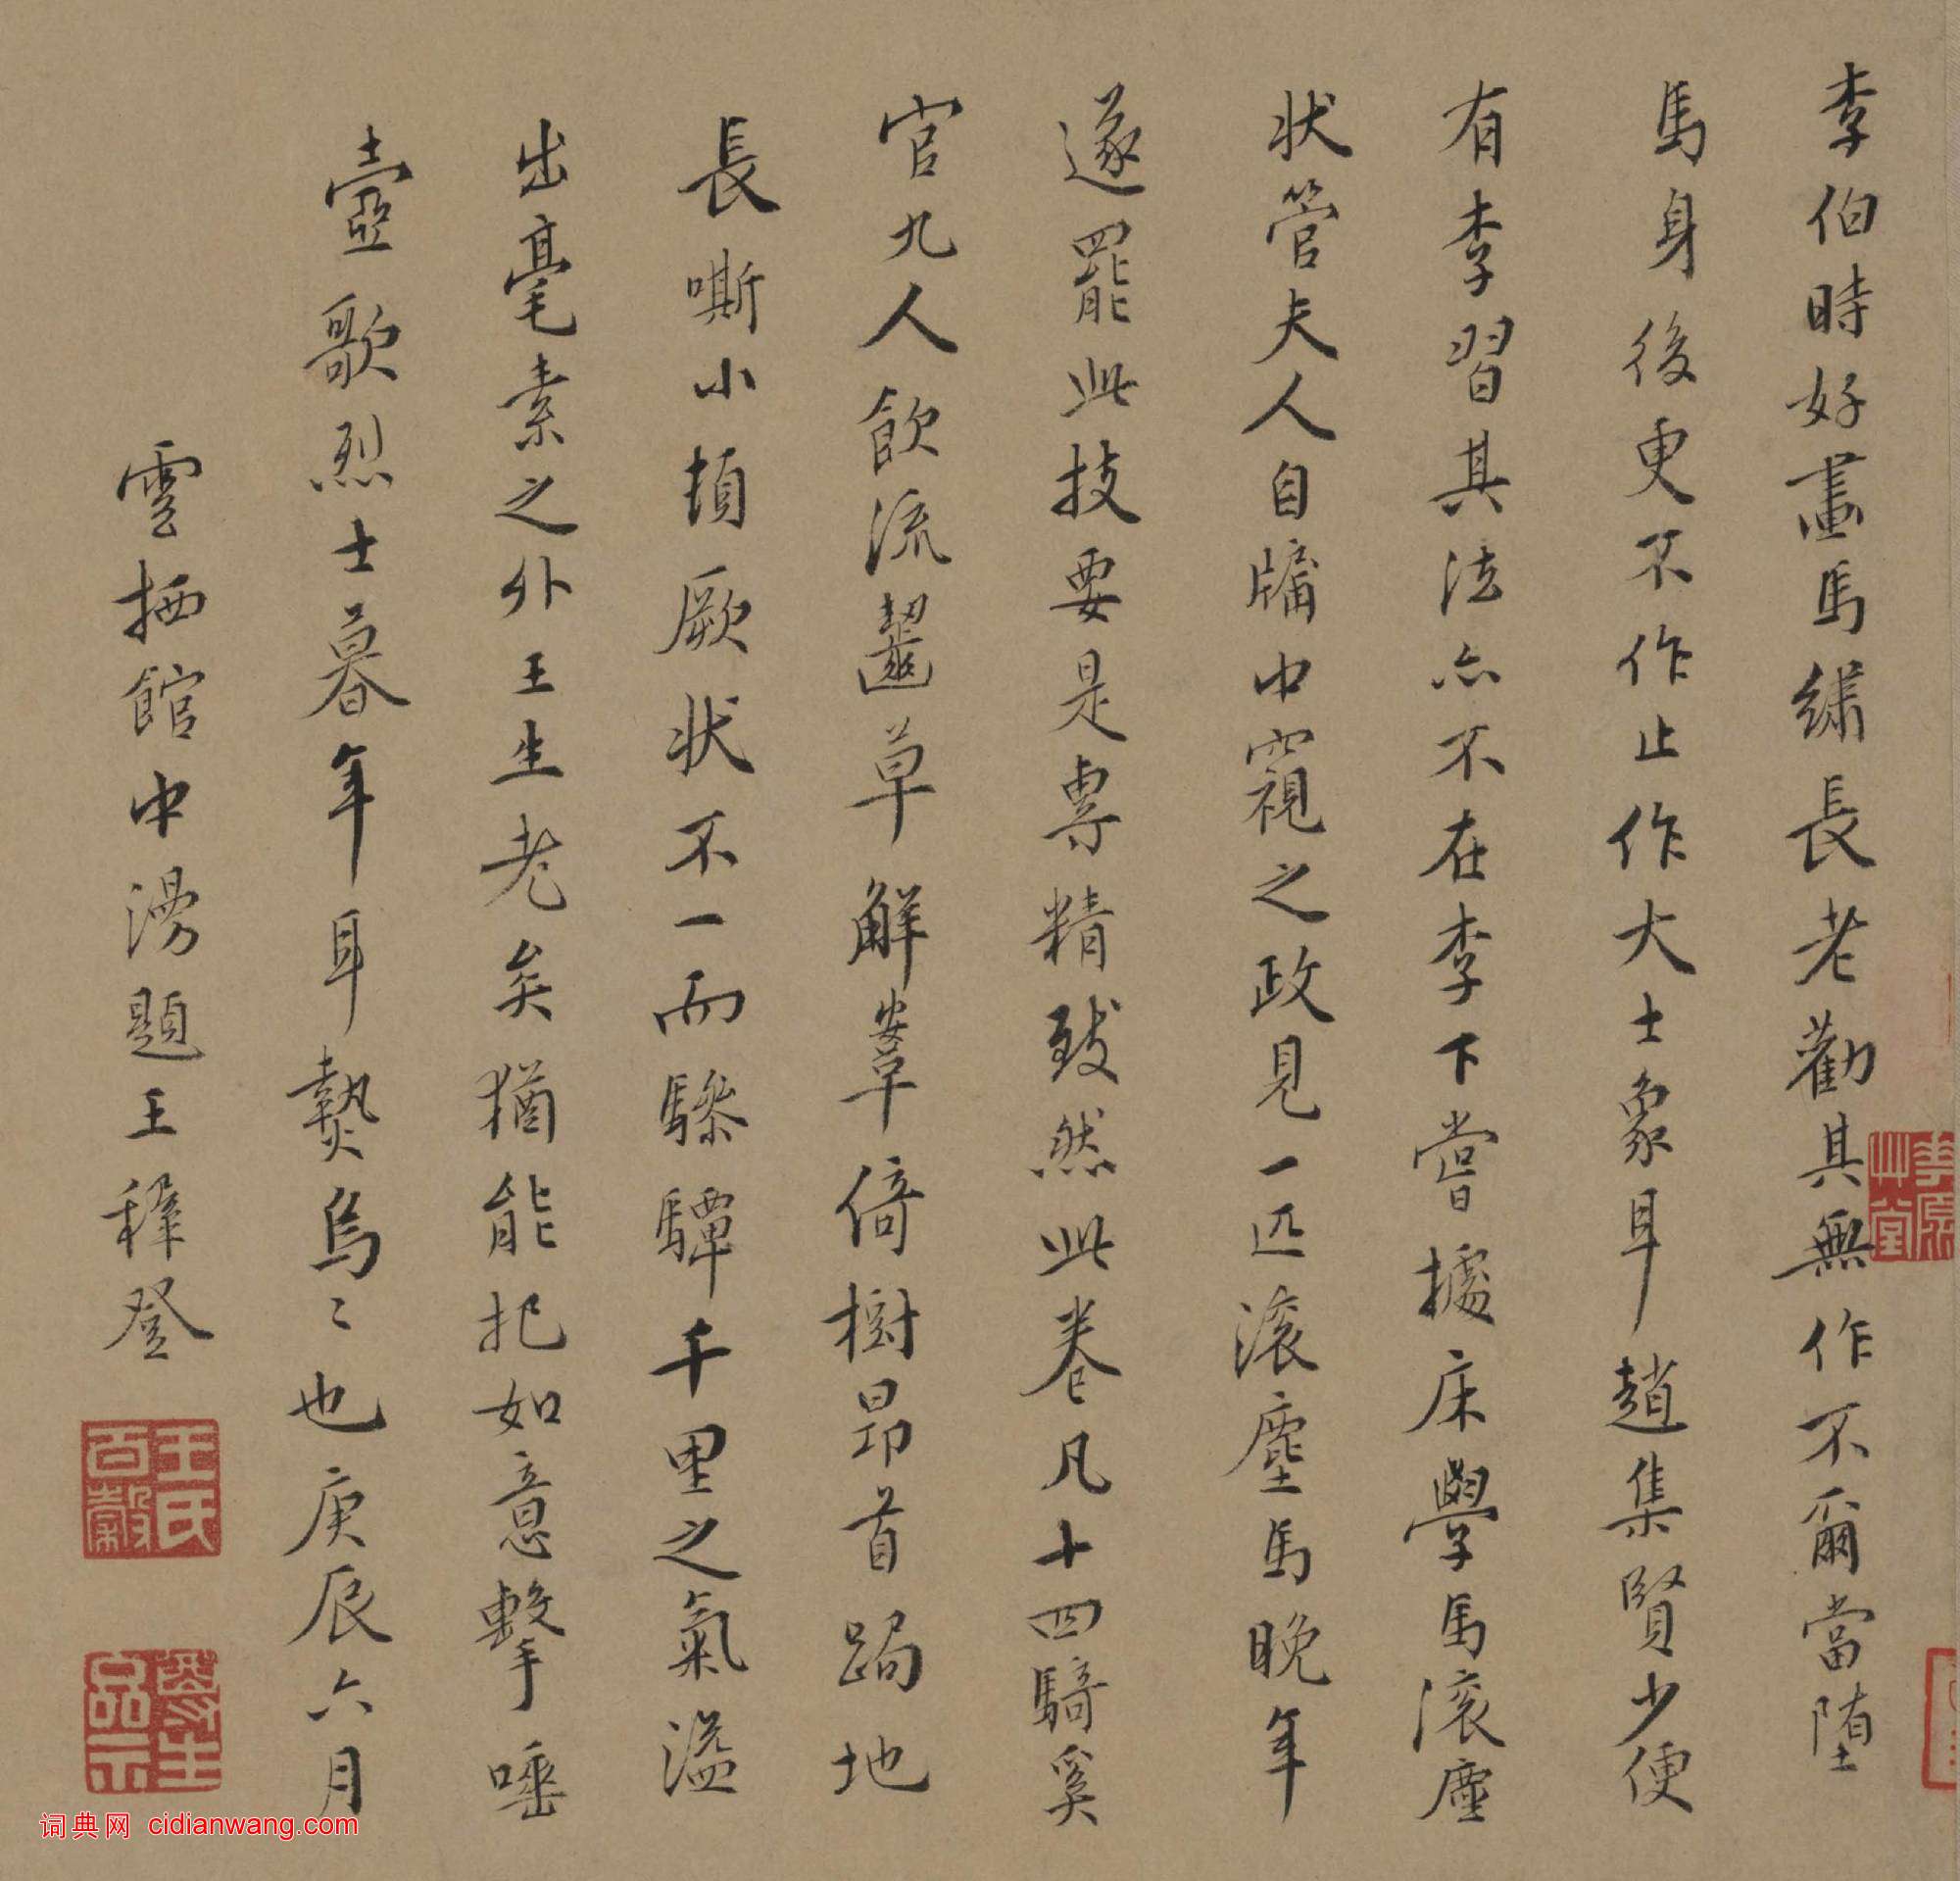 李伯時好畫馬綉長老勸其無作不爾當堕
馬身後更不作止作大士象耳趙集賢少便
有李習其法亦不在李下嘗據床學馬滚塵
狀管夫人自牖中窺之政見一匹滚塵馬晚年
遂罷此技要是専精致然此卷凡十四騎奚
官九人飲流齧草解鞌倚樹昂首跼地
長嘶小頓厥狀不一而驂驔千里之氣溢
出毫素之外王生老矣猶能把如意擊唾
壺歌烈士暮年耳熱烏〻也庚辰六月
雲栖館中漫題王穉登
王氏百穀
詞典网 cidianwang.com